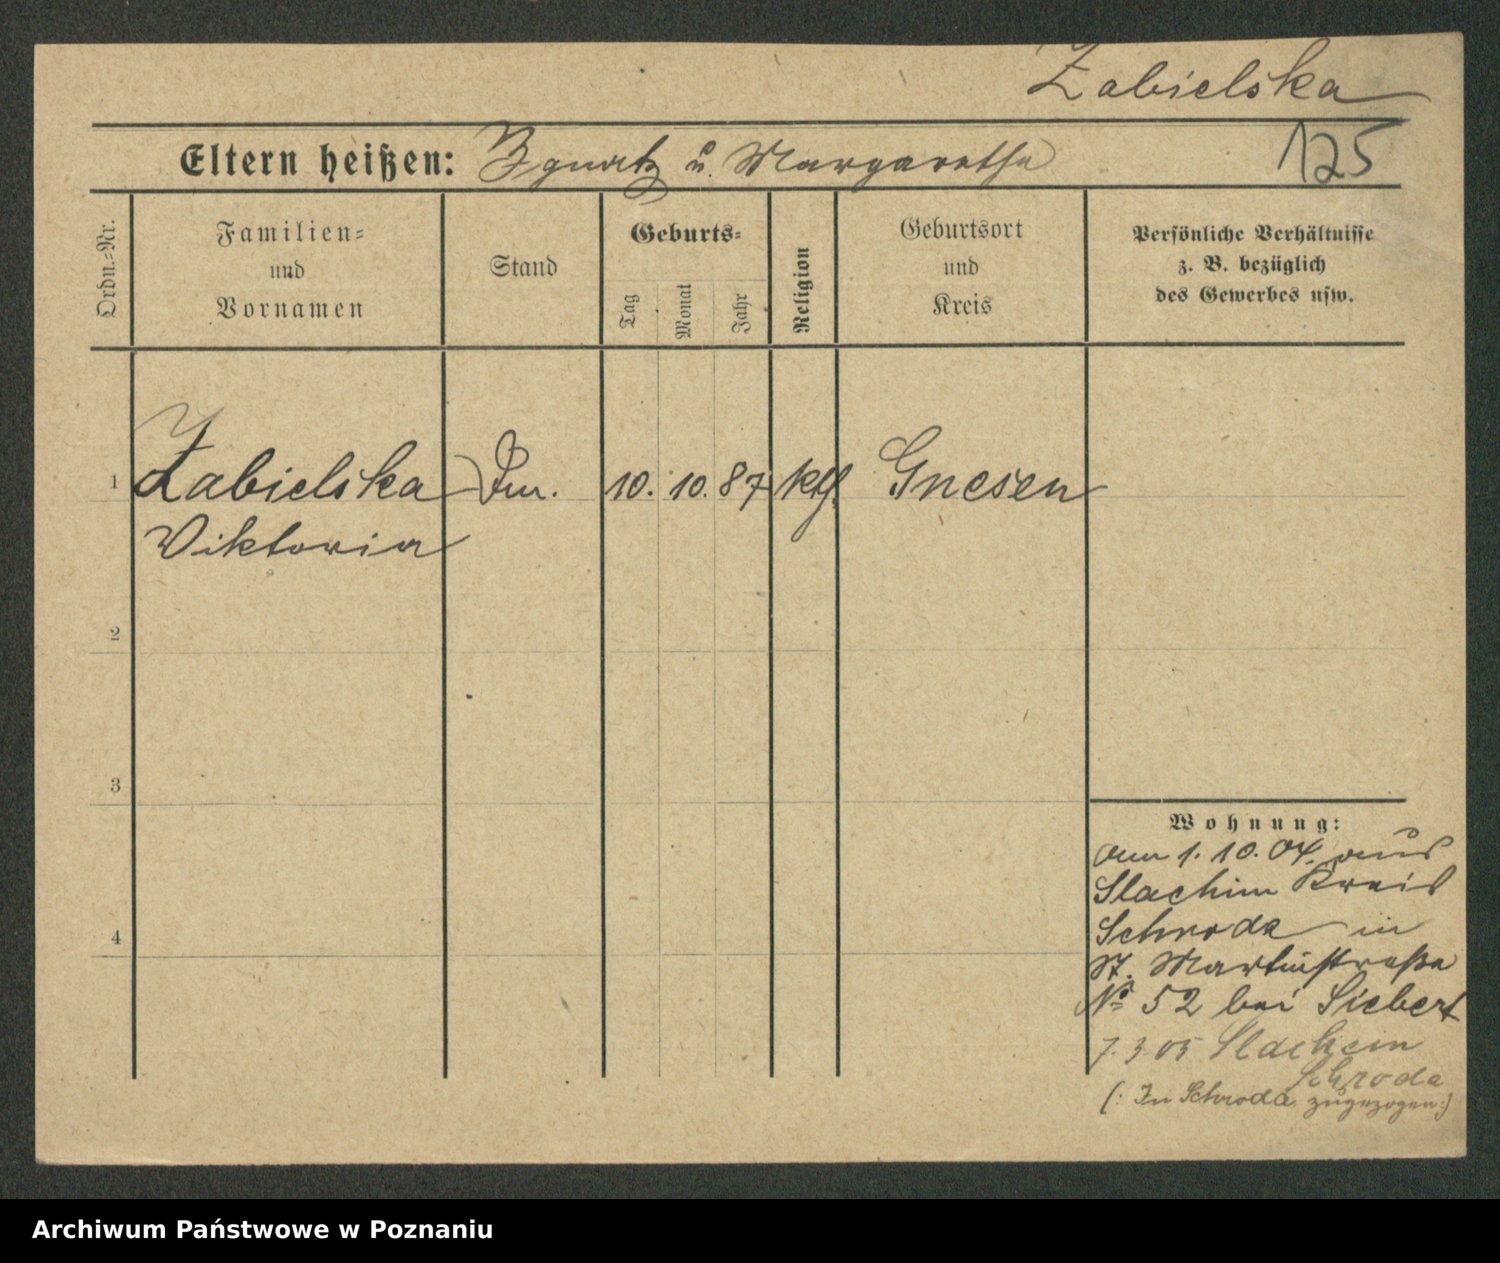 Zabielska
Eltern heißen: Ignatz u. Margarethe
125
Ordn.=Nr.
Familien=
und
Vornamen
Stand
Geburts=
Tag
Monat
Jahr
Religion
Geburtsort
und
Kreis
Persönliche Verhältnisse
z. B. bezüglich
des Gewerbes usw.
1 Zabielska 10. 10. 87 kth. Gnesen
Viktoria
2
3
4
Wohnung:
am 1. 10. 04. aus
Slachim Kreis
Schroda in
St. Martinstraße
No 52 bei Siebert
7. 3 05 Slachcin
Schroda
(: In Schroda zugezogen :)
Archiwum Państwowe w Poznaniu